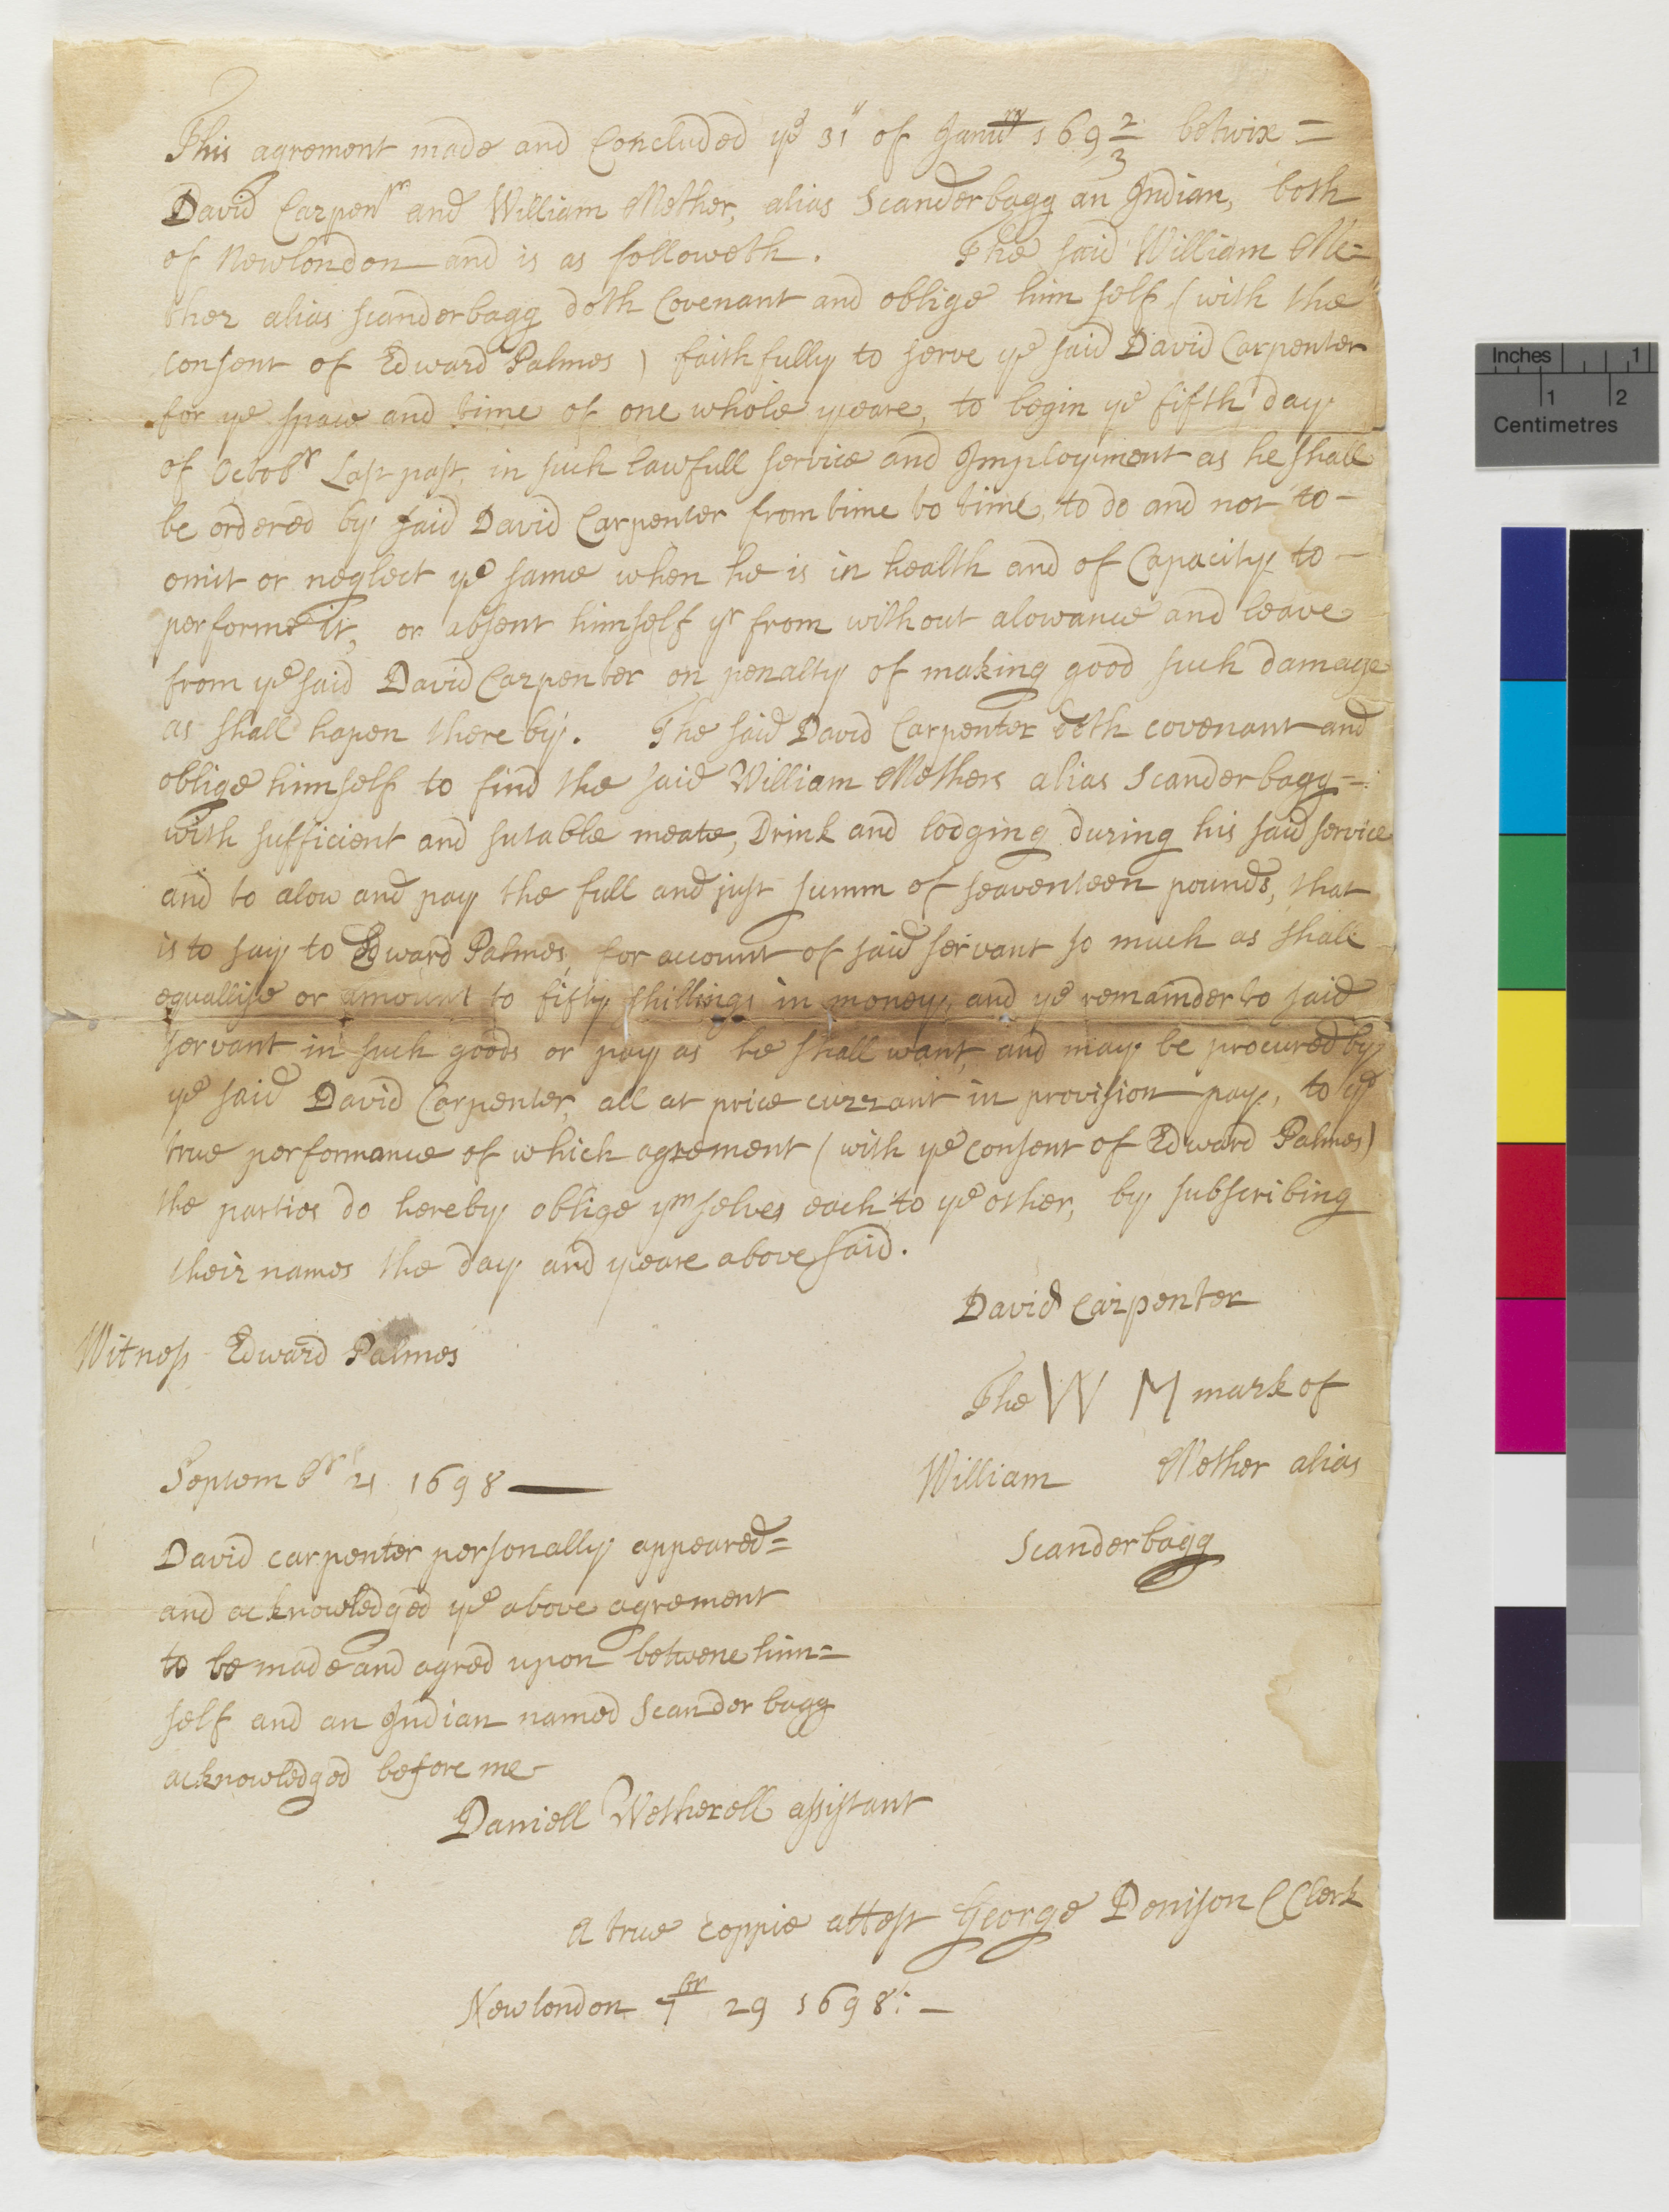 This agrement made and Concluded ye 31 of Janury 169 2/3 betwix =
David Carpenr and William Mether, alias Scanderbagg an Indian, both
of Newlondon and is as followeth. The said William Me=
ther alias scanderbagg doth Covenant and oblige him self (with the
consent of Edward Palmes) faithfully to serve ye said David Carpenter
for ye space and time of one whole yeare, to begin ye fifth day
of Octobr Last past, in such lawfull service and Imployment as he shall
be ordered by said David Carpenter from time to time, to do and not to -
omit or neglect ye same when he is in health and of Capacity to -
performe it, or absent himself yr from without alowance and leave
from ye said David Carpenter on penalty of making good such damage
as shall hapen there by. The said David Carpenter doth covenant and
oblige himself to find the said William Methers alias Scanderbagg =
with sufficient and sutable meate, Drink and lodging during his said service
and to alow and pay the full and just summ of seaventeen pounds, that
is to say to Edward Palmes, for account of said servant so much as shall
equallise or amount to fifty shillings in money, and ye remainder to said
servant in such goods or pay as he shall want, and may be procured by
ye said David Carpenter, all at price currant in provision pay, to ye
true performance of which agrement (with ye consent of Edward Palmes)
the parties do hereby oblige ym selves each to ye other, by subscribing
their names the day and yeare above said.
David Carpenter
Witness Edward Palmes
The W M mark of
William Mether alias
Scanderbagg
Septembr 21 1698
David carpenter personally appeared =
and acknowledged ye above agrement
to be made and agred upon betwene him =
self and an Indian named Scanderbagg
acknowledged before me
Daniell Wetherell assistant
A true coppie attest George Denison CClerk
Newlondon 7br 29 1698 : -
Inches 1
1 2
Centimetres